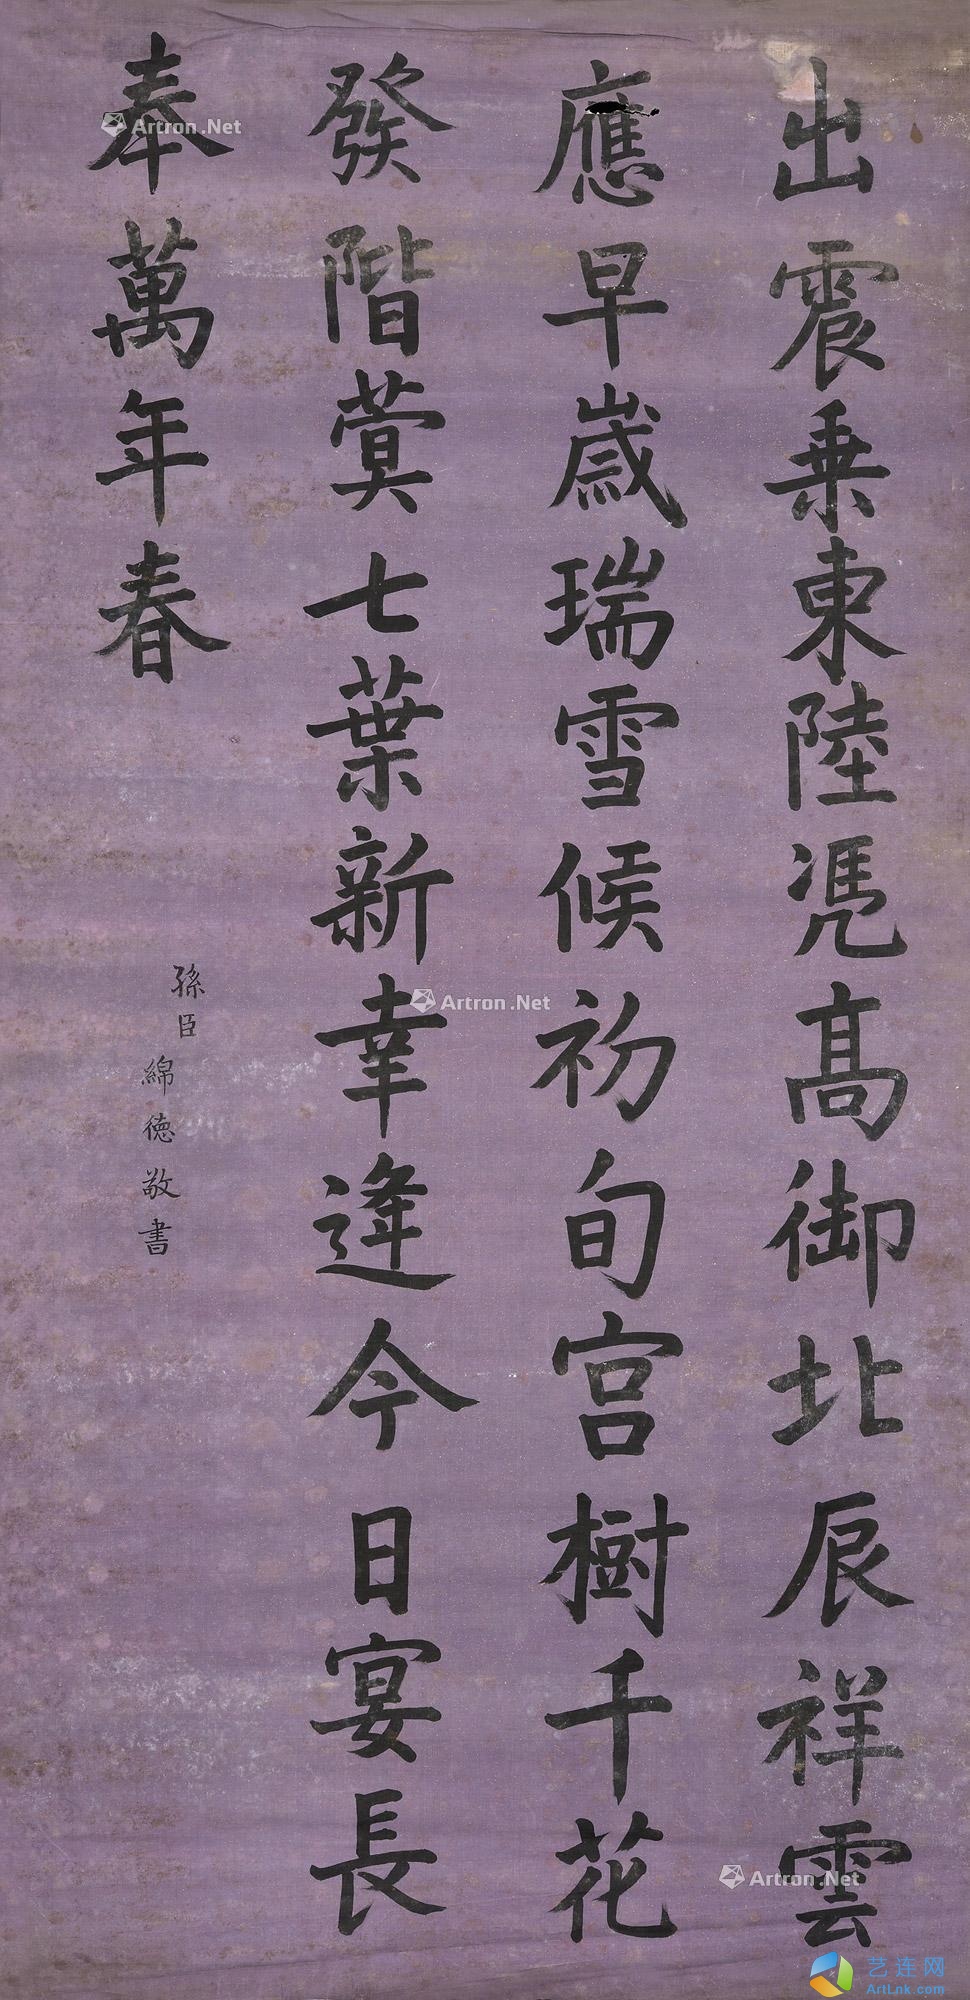 出震乗東陸凴髙御北辰祥雲
應早歲瑞雪候初旬宮樹千花
發階蓂七葉新幸逢今日宴長
奉萬年春
孫臣
綿德敬書
Artron.Net
Artron.Net
Artron.Net
艺连网
ArtLnk.com